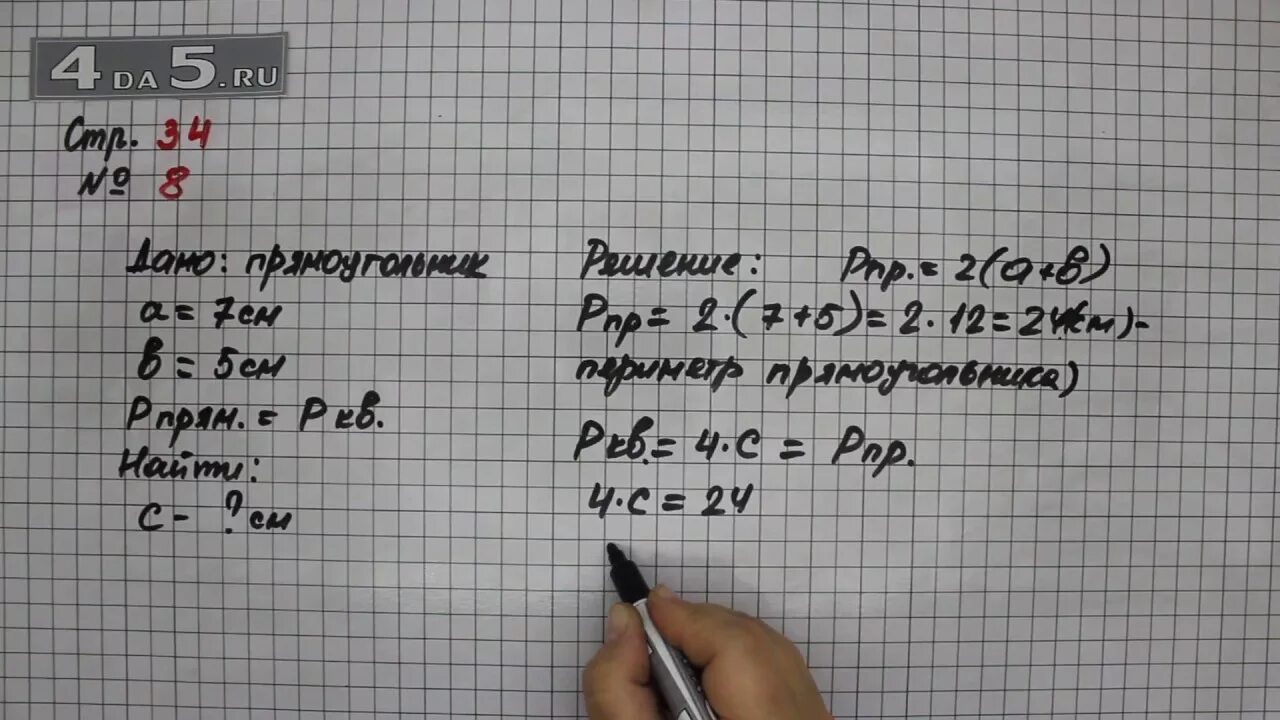 4DA5.RU
Стр. 34
№ 8
Дано: прямоугольник
a = 7см
в = 5см
Pпрям. = Pкв.
Найти:
с - ? см
Решение: Pпр. = 2(a+в)
Pпр = 2·(7+5) = 2·12 = 24(см)-
периметр прямоугольника)
Pкв. = 4·с = Pпр.
4·с = 24